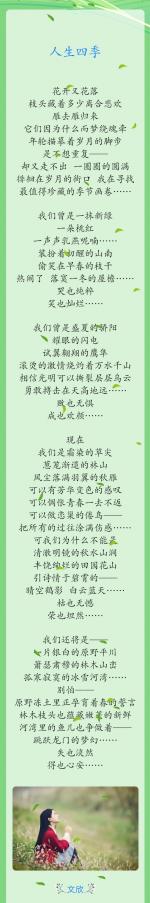 人生四季
花开又花落
枝头藏着多少离合悲欢
雁去雁归来
它们因为什么而梦绕魂牵
年轮描摹着岁月的脚步
是不想重复——
却又走不出 一圈圈的圆满
徘徊在岁月的街口 我在寻找
最值得珍藏的季节画卷……
我们曾是一抹新绿
一朵桃红
一声声乳燕呢喃……
装扮着初醒的山南
偷笑在早春的枝干
热闹了 落寞一冬的屋檐……
哭也纯粹
笑也灿烂……
我们曾是盛夏的骄阳
耀眼的闪电
试翼翱翔的鹰隼
滚烫的激情烧灼着万水千山
相信光明可以撕裂层层乌云
勇敢搏击在天高地远……
败也无惧
成也欢颜……
现在
我们是霜染的草尖
葱茏渐逝的林山
风尘落满羽翼的秋雁
可以有芳华变色的感叹
可以惆怅青春一去不返
可以做恋巢的倦鸟——
把所有的过往涂满伤感……
可我们为什么不能是
清澈明镜的秋水山涧
丰饶绚烂的田园花山
引诗情于碧霄的——
晴空鹤影 白云蓝天……
枯也无憾
荣也坦然……
我们还将是——
一片银白的原野平川
萧瑟肃穆的林木山峦
孤寂寂寞的冰雪河湾……
别怕——
原野冻土里正孕育着春的誓言
林木枝头也蕴蓄嫩蕊的新鲜
河湾里的鱼儿也争做着——
跳跃龙门的梦幻……
失也淡然
得也心安……
文欣